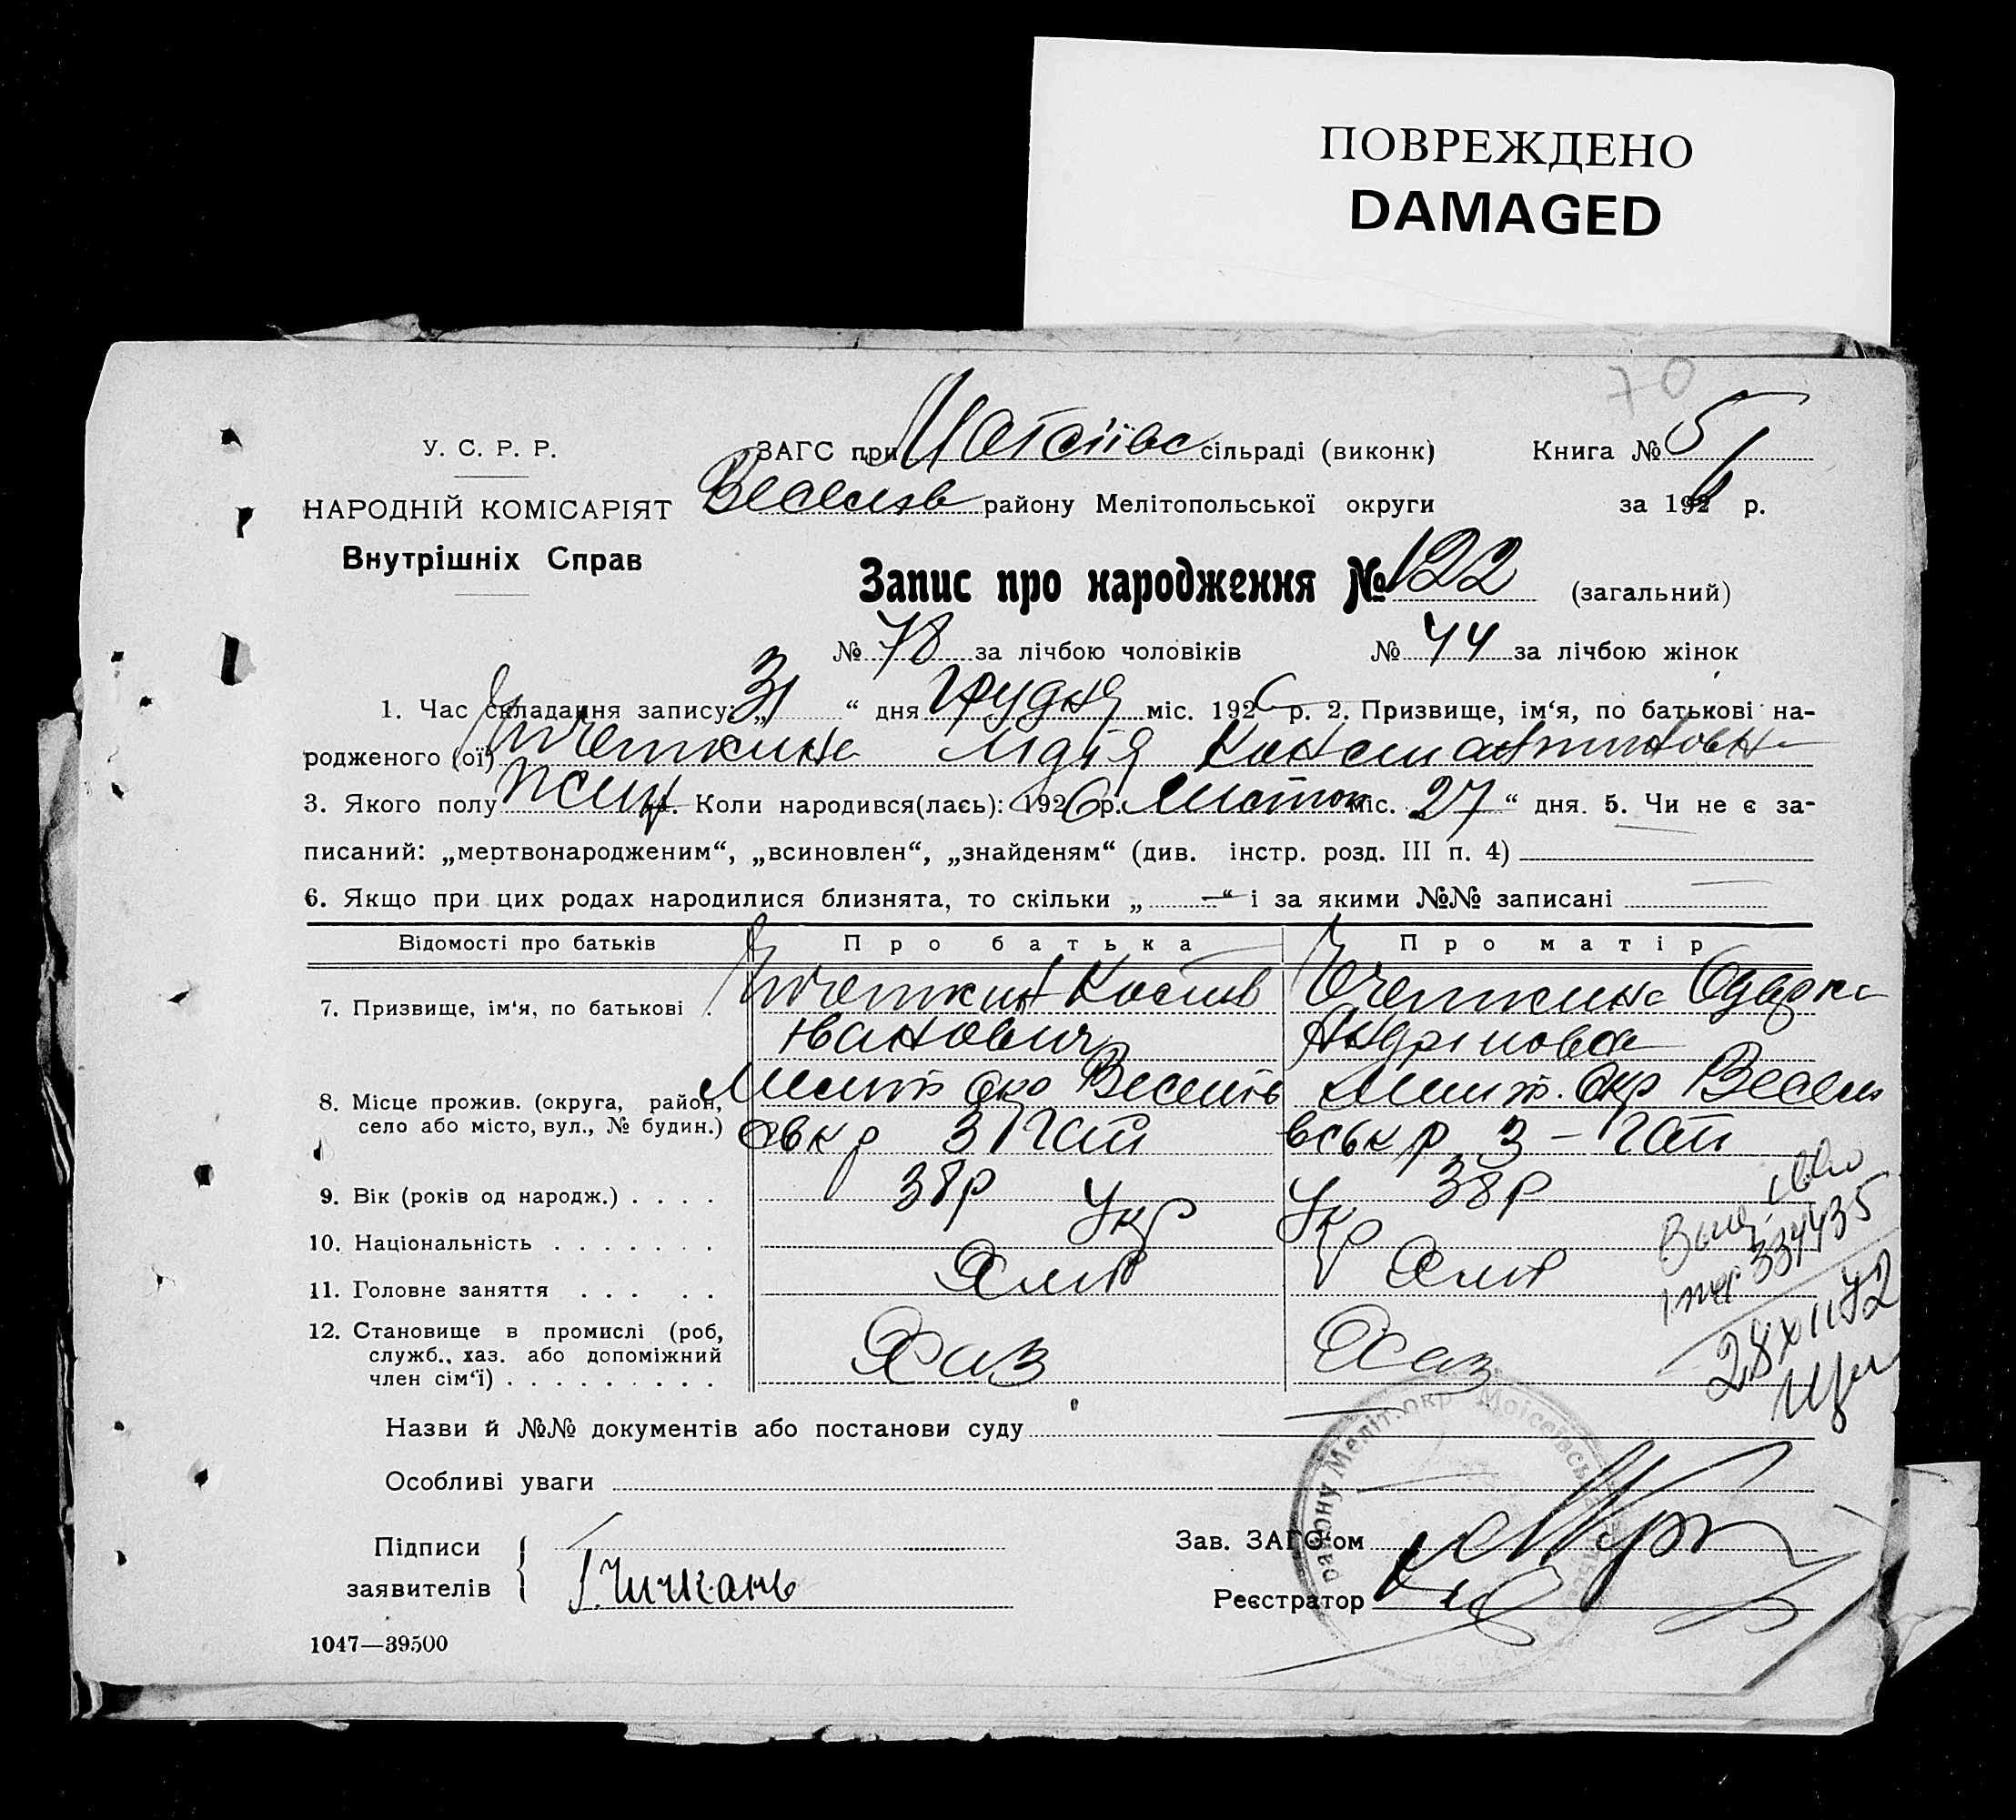 ПОВРЕЖДЕНО
DAMAGED
70
У. С. Р. Р.
ЗАГС при сільраді (виконк)
Книга № 5
НАРОДНІЙ КОМІСАРІЯТ
Веселів району Мелітопольської округи
за 1926 р.
Внутрішніх Справ
Запис про народження № 122 (загальний)
№ 78 за лічбою чоловіків № 44 за лічбою жінок
1. Час складання запису: „31“ дня Грудня міс. 1926 р. 2. Призвище, ім‘я, по батькові на-
родженого (ої) Лідія Константиновн
3. Якого полу жін Коли народився(лаєь): 1926 р. Листоп міс. 27 “ дня. 5. Чи не є за-
писаний: „мертвонародженим“, „всиновлен“, „знайденям“ (див. інстр. розд. III п. 4)
6. Якщо при цих родах народилися близнята, то скільки „—“ і за якими №№ записані
Відомості про батьків
Про батька
Про матір
7. Призвище, ім‘я, по батькові .
Іванович
Одарка
8. Місце прожив. (округа, район, село або місто, вул., № будин.)
Меліт окр Веселів
Меліт. Окр Весели
вськ р
9. Вік (років од народж.) . . . .
38р
38р
10. Національність . . . . . . .
Укр
Укр
11. Головне заняття . . . . .
Хліб
Хліб
12. Становище в промислі (роб,
служб., хаз. або допоміжний
член сім‘ї) . . . . . . . . .
Хаз
Хаз
334435
28 XII 42
Назви й №№ документів або постанови суду
Особливі уваги
Підписи
заявителів
Зав. ЗАГС‘ом
Реєстратор
району Меліт. окр Моісеївськ
1047—39500